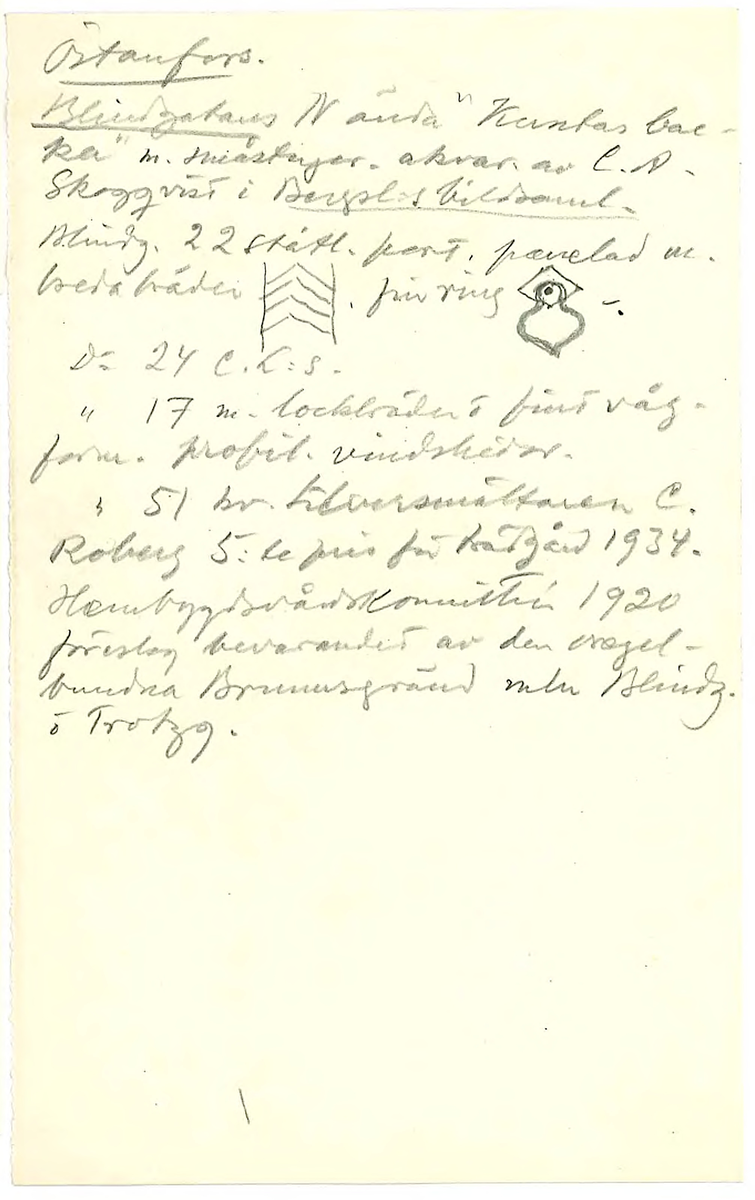 Östanfors.
Blindgatans N ända "Kerstas bac-
ka" m. småstugor. akvar. av C. A.
Skogqvist i Bergsl:s bildsaml.
Blindg. 22 ståtl. port. panelad m.
breda bräder . fin ring -.
D:o 24 C. L:s.
" 17 m. lockbräder o fint våg-
form. profil. vindskidor.
" 51 hr. Silversmältaren C.
Roberg 5:te pris för trädgård 1934.
Hembygdsvårdskommittén 1920
föreslog bevarandet av den oregel-
bundna Brunnsgränd mln Blindg.
o Trotzg.